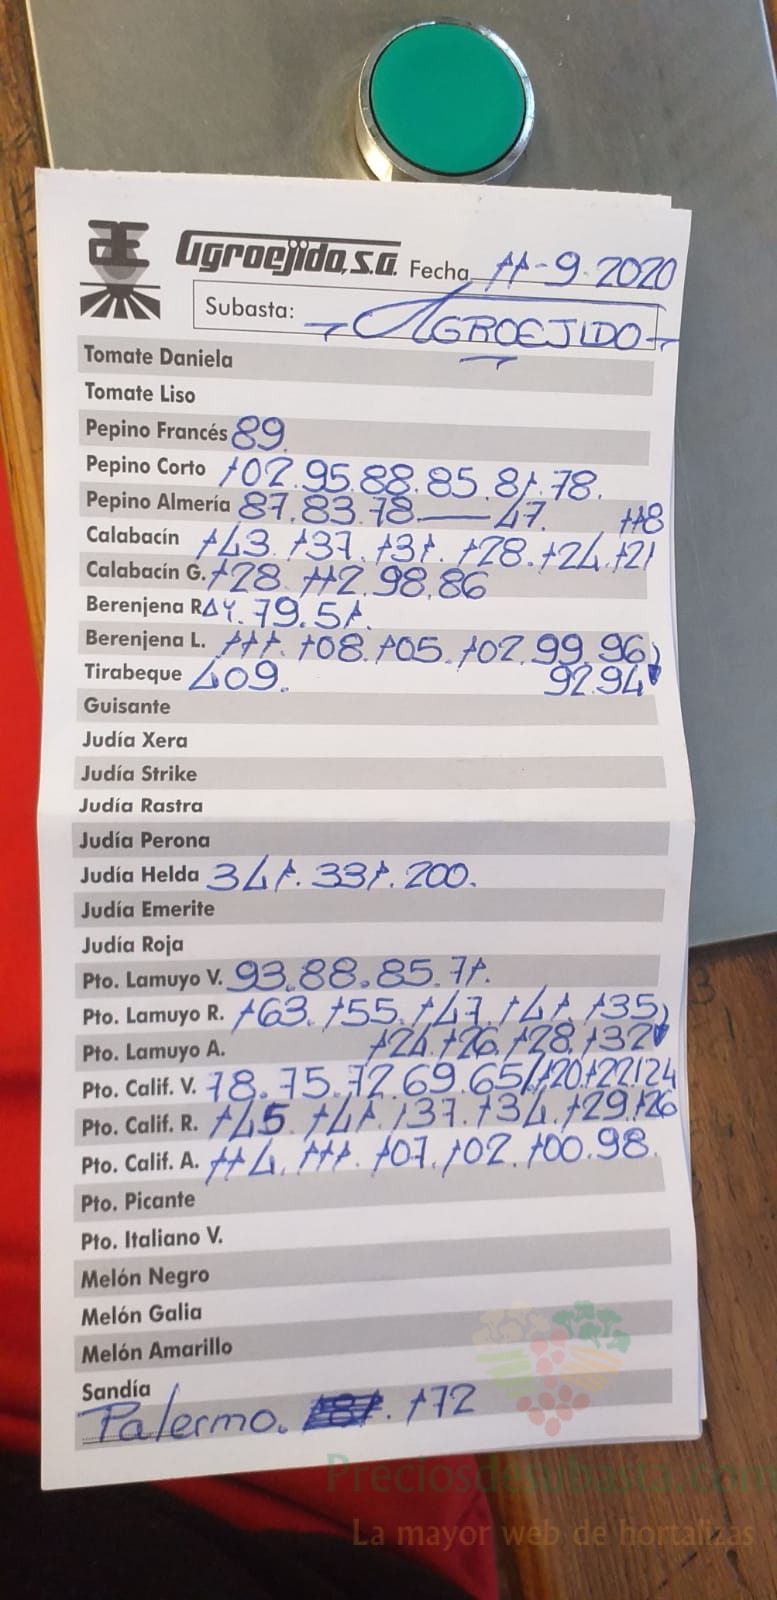 Agroejido, S.A. Fecha 11-9-2020
Subasta: AGROEJIDO
Tomate Daniela
Tomate Liso
Pepino Francés 89.
Pepino Corto 102.95.88.85.81.78.
Pepino Almería 87.83.78.—47. 118
Calabacín 143.137.131.128.124.121
Calabacín G. 128.112.98.86
Berenjena RAY. 79.51.
Berenjena L. 111.108.105.102.99.96
Tirabeque 409. 92.94
Guisante
Judía Xera
Judía Strike
Judía Rastra
Judía Perona
Judía Helda 341.331.200.
Judía Emerite
Judía Roja
Pto. Lamuyo V. 93.88.85.71.
Pto. Lamuyo R. 163.155.147.141.135
Pto. Lamuyo A. 124.126.128.132
Pto. Calif. V. 78.75.72.69.65/120.122.124
Pto. Calif. R. 145.141.137.134.129.126
Pto. Calif. A. 114.111.107.102.100.98.
Pto. Picante
Pto. Italiano V.
Melón Negro
Melón Galia
Melón Amarillo
Sandía
Palermo. 172
Preciosdesubasta.com
La mayor web de hortalizas